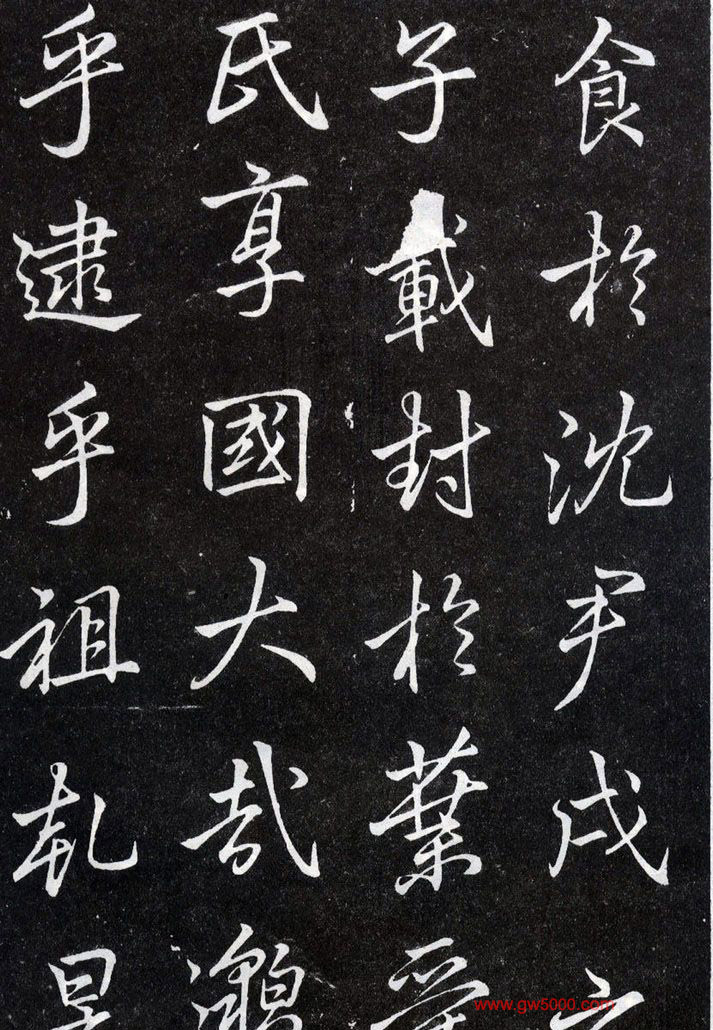 食於沈尹戌之
子載封於葉受
氏享國大哉邈
乎逮乎祖乹
www.gw5000.com